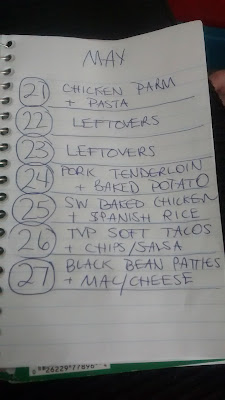 MAY
21 CHICKEN PARM
+ PASTA
22 LEFTOVERS
23 LEFTOVERS
24 PORK TENDERLOIN
+ BAKED POTATO
25 SW BAKED CHICKEN
+ SPANISH RICE
26 TVP SOFT TACOS
+ CHIPS/SALSA
27 BLACK BEAN PATTIES
+ MAC/CHEESE